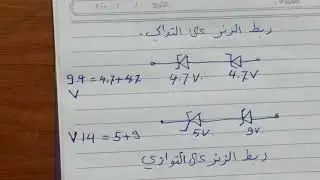 ربط الزنر على التوالي.
9.4 = 4.7+4.7
V
4.7V. 4.7V.
V 14 = 5+9
5V. 9V.
ربط الزنر على التوازي